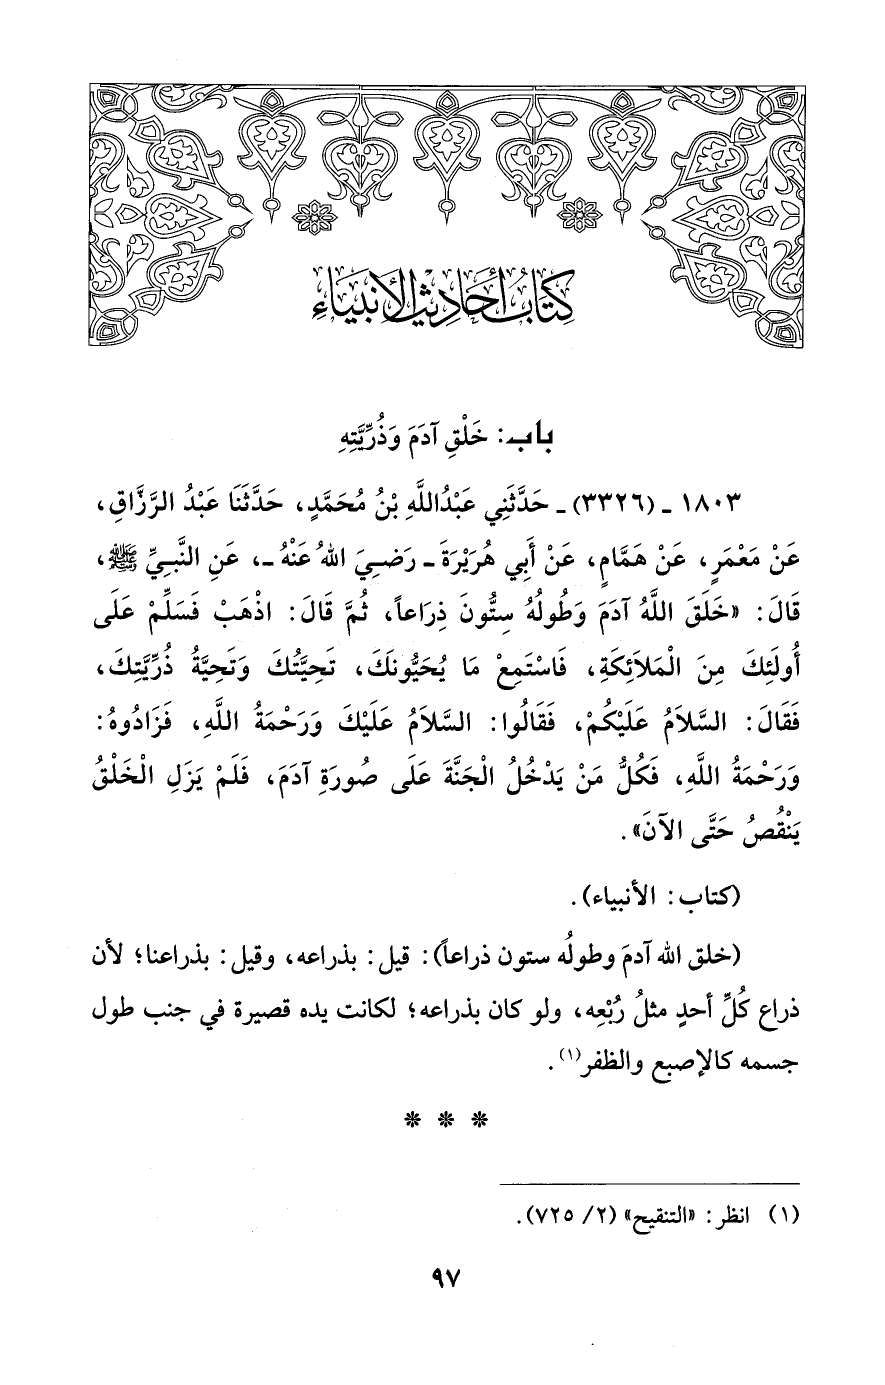 كِتَابُ أَحَادِيثِ الأَنْبِيَاءِ
باب: خَلْقِ آدَمَ وَذُرِّيَّتِهِ
١٨٠٣ ـ (٣٣٢٦) ـ حَدَّثَنِي عَبْدُاللَّهِ بْنُ مُحَمَّدٍ، حَدَّثَنَا عَبْدُ الرَّزَّاقِ،
عَنْ مَعْمَرٍ، عَنْ هَمَّامٍ، عَنْ أَبِي هُرَيْرَةَ ـ رَضِيَ اللهُ عَنْهُ ـ، عَنِ النَّبِيِّ ﷺ،
قَالَ: «خَلَقَ اللَّهُ آدَمَ وَطُولُهُ سِتُّونَ ذِرَاعاً، ثُمَّ قَالَ: اذْهَبْ فَسَلِّمْ عَلَى
أُولَئِكَ مِنَ الْمَلَائِكَةِ، فَاسْتَمِعْ مَا يُحَيُّونَكَ، تَحِيَّتُكَ وَتَحِيَّةُ ذُرِّيَّتِكَ،
فَقَالَ: السَّلَامُ عَلَيْكُمْ، فَقَالُوا: السَّلَامُ عَلَيْكَ وَرَحْمَةُ اللَّهِ، فَزَادُوهُ:
وَرَحْمَةُ اللَّهِ، فَكُلُّ مَنْ يَدْخُلُ الْجَنَّةَ عَلَى صُورَةِ آدَمَ، فَلَمْ يَزَلِ الْخَلْقُ
يَنْقُصُ حَتَّى الآنَ».
(كتاب: الأنبياء).
(خلق الله آدمَ وطولُه ستون ذراعاً): قيل: بذراعه، وقيل: بذراعنا؛ لأن
ذراع كُلِّ أحدٍ مثلُ رُبْعِه، ولو كان بذراعه؛ لكانت يده قصيرة في جنب طول
جسمه كالإصبع والظفر(١).
* * *
(١) انظر: «التنقيح» (٢/ ٧٢٥).
٩٧